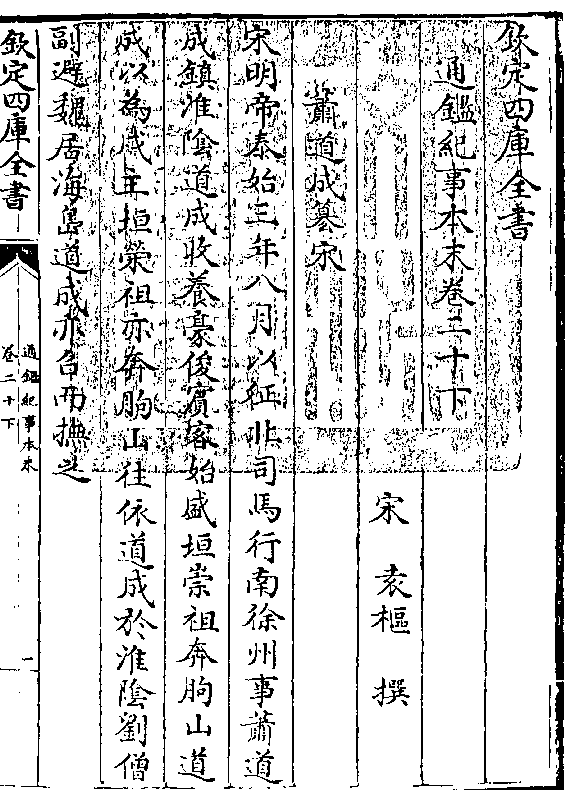 欽定四庫全書
通鑑紀事本末卷二十下
宋 袁樞 撰
蕭道成篡宋
宋明帝泰始三年八月以征北司馬行南徐州事蕭道
成鎮淮陰道成收養豪俊賓客始盛垣崇祖奔朐山道
成以為戍主垣榮祖亦奔朐山往依道成於淮陰劉僧
副避魏居海島道成亦召而撫之
欽定四庫全書
通鑑紀事本末
卷二十下
一